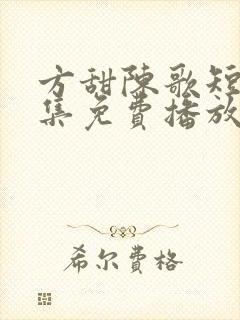 方甜陈歌短
集免费播放
希尔费格